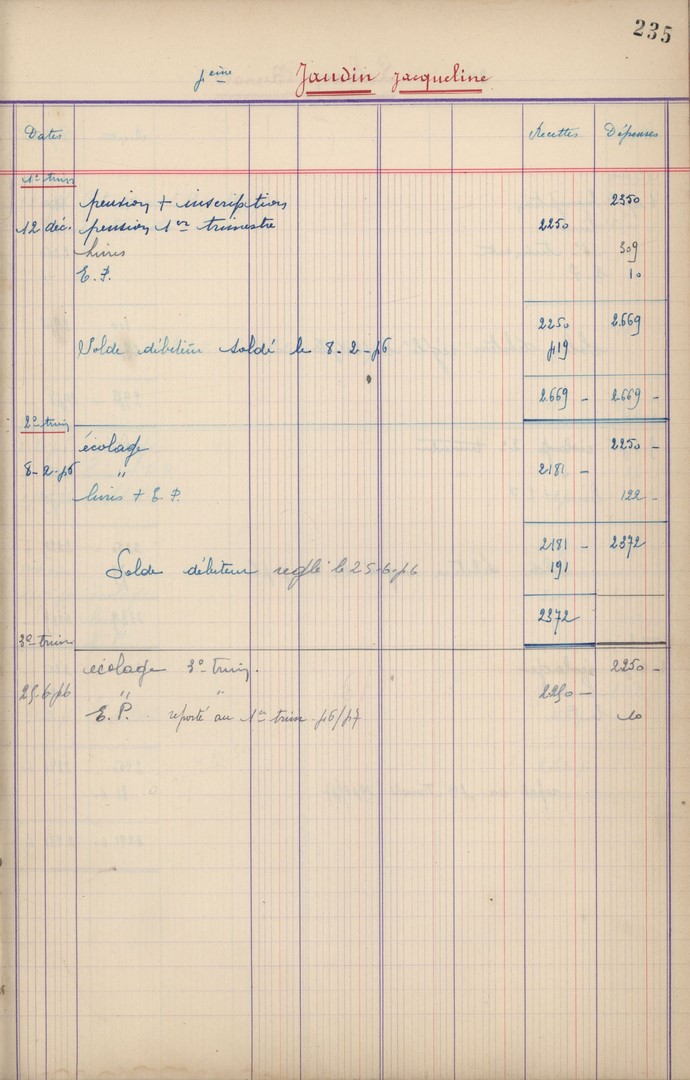 235
4ème Jaudin Jacqueline
Dates Recettes Dépenses
1er trim
pension + inscription 2350
12 déc. pension 1er trimestre 2250
Livres 309
E.P. 10
2250 2.669
Solde débiteur soldé le 8-2-46 419
2.669 - 2.669 -
2e trim
écolage 2250 -
8-2-46 " 2181 -
livres + E.P. 122 -
2181 - 2372
Solde débiteur réglé le 25-6-46 191
2372
3e trim
écolage 3e trim. 2250 -
25-6-46 " " 2250 -
E.P. reporté au 1er trim 46/47 10